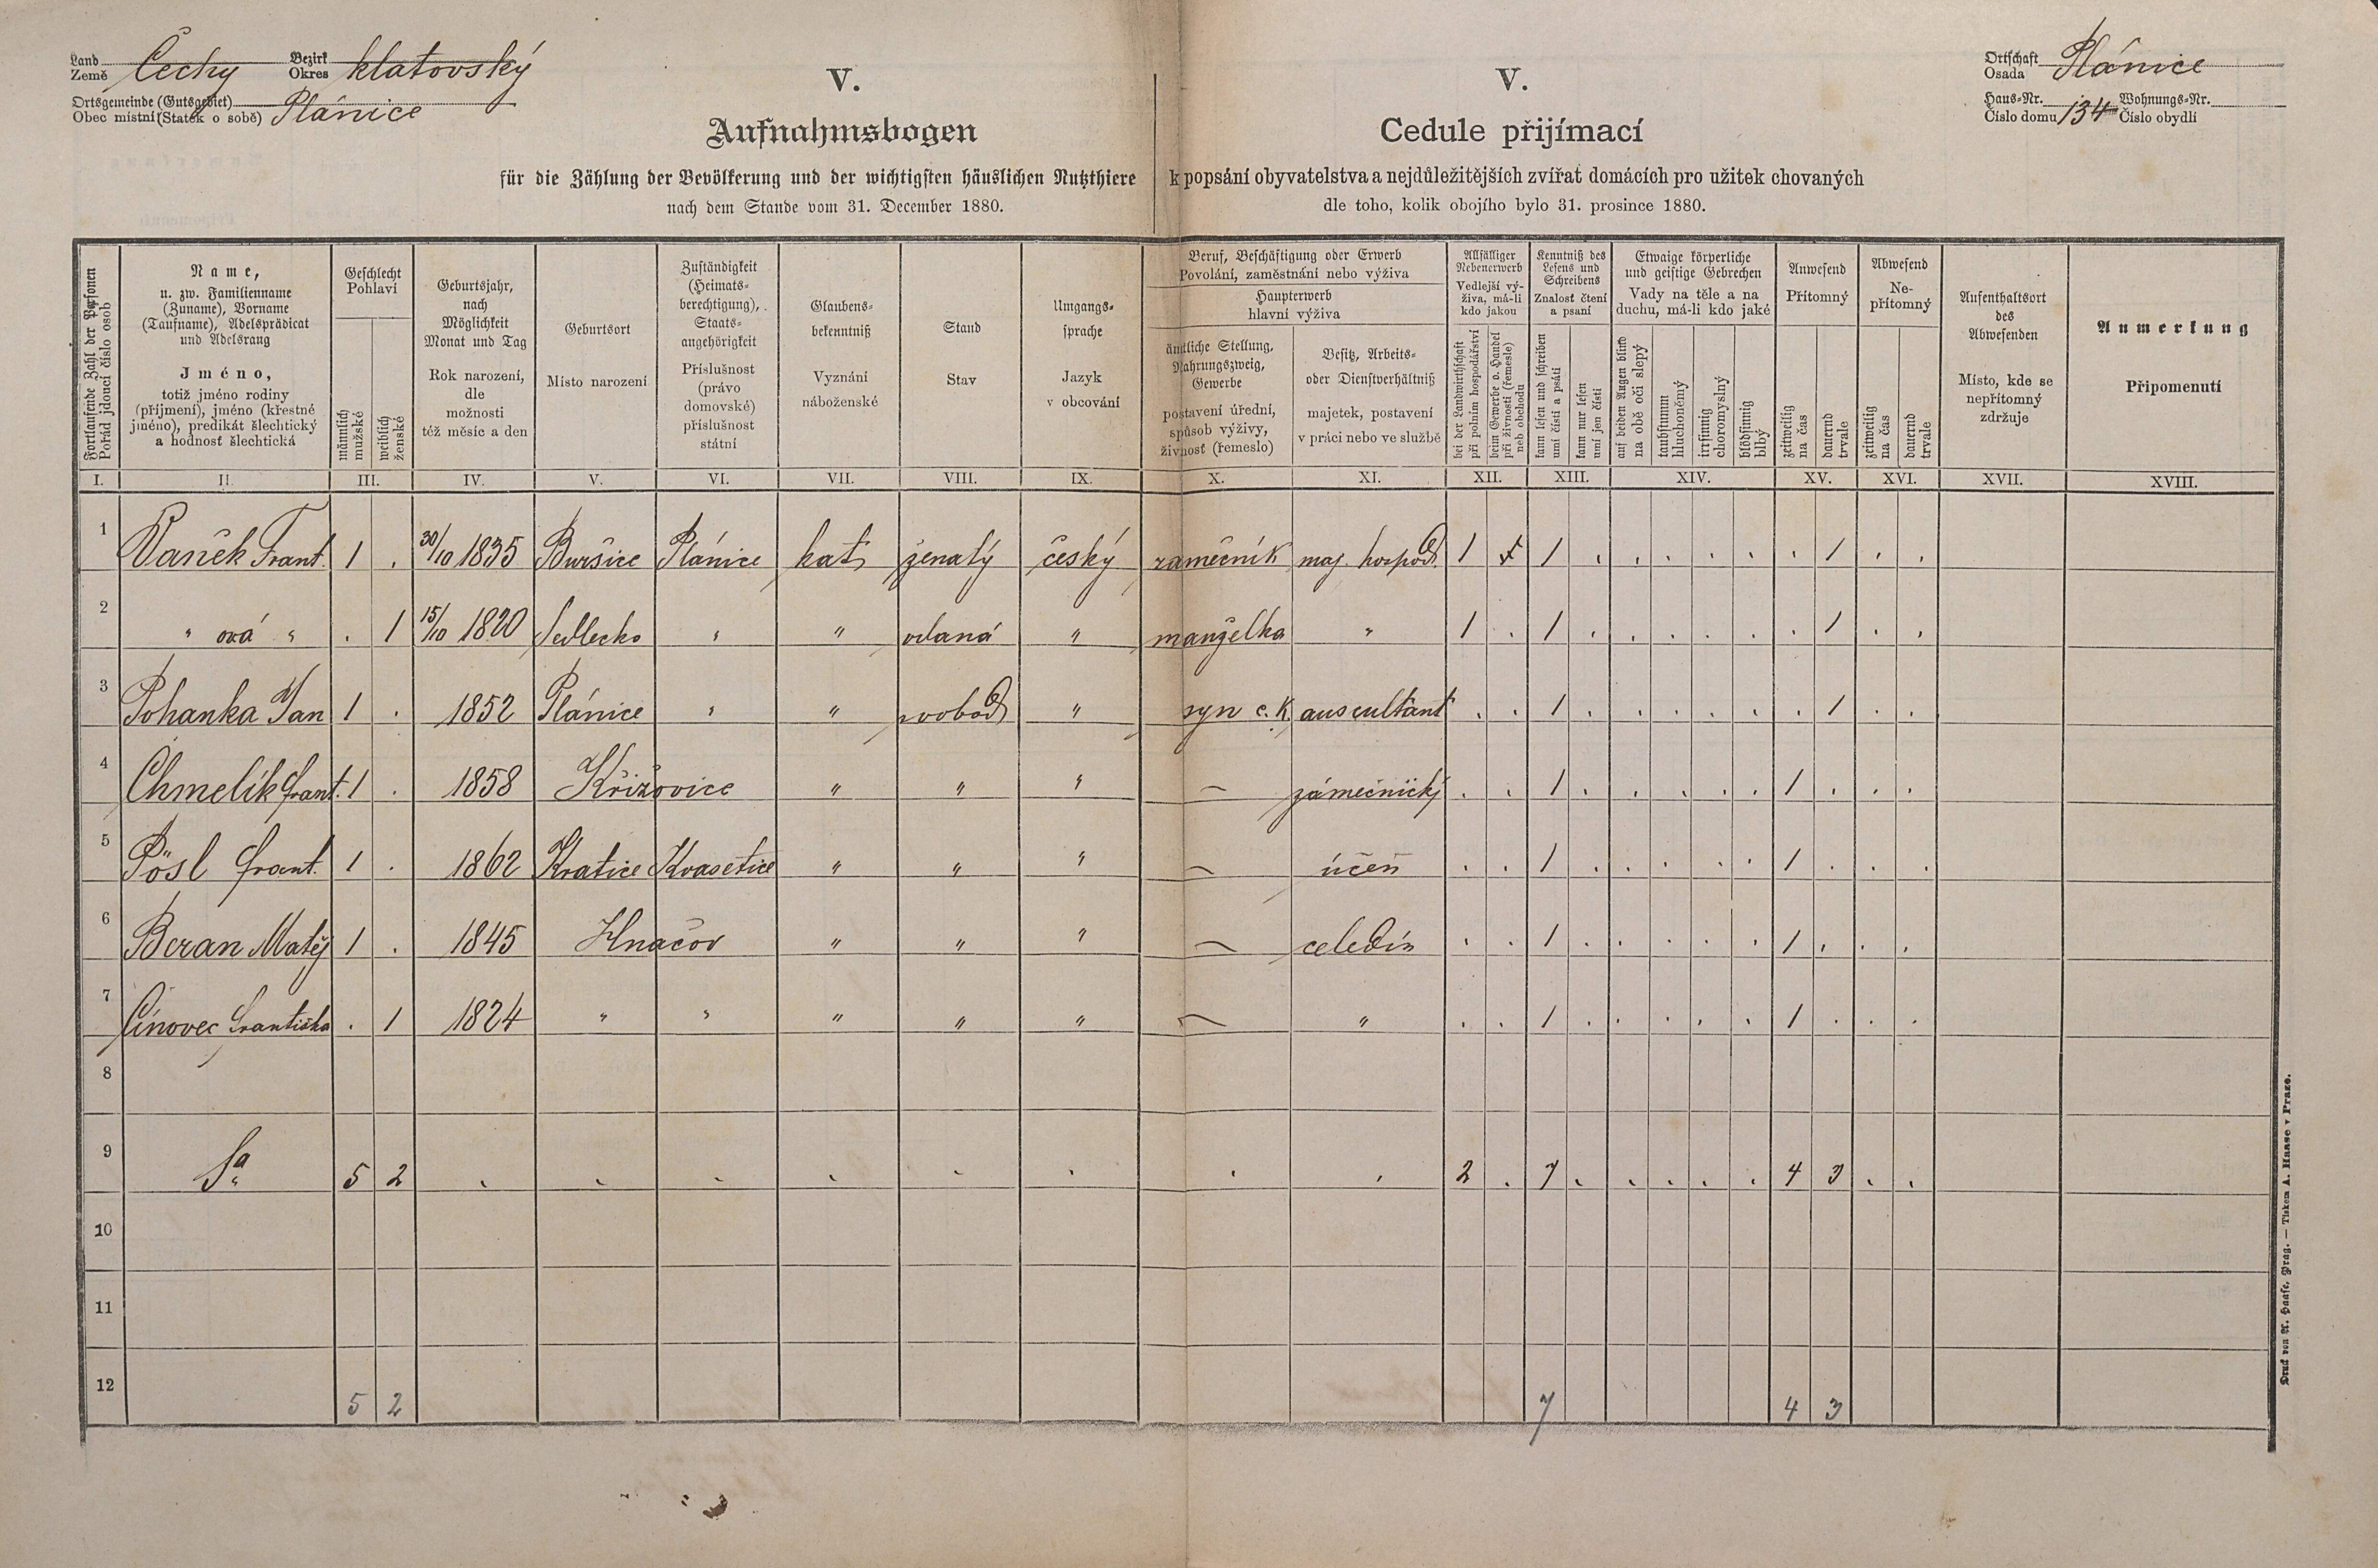 Land
Země Čechy Bezirk
Okres klatovský
Ortsgemeinde (Gutsgebiet)
Obec místní (Statek o sobě) Plánice
Ortschaft
Osada Plánice
Haus-Nr.
Číslo domu 134 Wohnungs-Nr.
Číslo obydlí
V.
Aufnahmsbogen
für die Zählung der Bevölkerung und der wichtigsten häuslichen Nutzthiere
nach dem Stande vom 31. December 1880.
V.
Cedule přijímací
k popsání obyvatelstva a nejdůležitějších zvířat domácích pro užitek chovaných
dle toho, kolik obojího bylo 31. prosince 1880.
Fortlaufende Zahl der Personen
Pořád jdoucí číslo osob
Name,
u. zw. Familienname
(Zuname), Vorname
(Taufname), Adelsprädicat
und Adelsrang
Jméno,
totiž jméno rodiny
(příjmení), jméno (křestné
jméno), predikát šlechtický
a hodnosť šlechtická
Geschlecht
Pohlaví
männlich
mužské
weiblich
ženské
Geburtsjahr,
nach
Möglichkeit
Monat und Tag
Rok narození,
dle
možnosti
též měsíc a den
Geburtsort
Místo narození
Zuständigkeit
(Heimats-
berechtigung),
Staats-
angehörigkeit
Příslušnost
(právo
domovské)
příslušnost
státní
Glaubens-
bekenntniß
Vyznání
náboženské
Stand
Stav
Umgangs-
sprache
Jazyk
v obcování
Beruf, Beschäftigung oder Erwerb
Povolání, zaměstnání nebo výživa
Haupterwerb
hlavní výživa
ämtliche Stellung,
Nahrungszweig,
Gewerbe
postavení úřední,
spůsob výživy,
živnosť (řemeslo)
Besitz, Arbeits-
oder Dienstverhältniß
majetek, postavení
v práci nebo ve službě
Allfälliger
Nebenerwerb
Vedlejší vý-
živa, má-li
kdo jakou
bei der Landwirthschaft
při polním hospodářství
beim Gewerbe o. Handel
při živnosti (řemesle)
neb obchodu
Kenntniß des
Lesens und
Schreibens
Znalosť čtení
a psaní
kann lesen und schreiben
umí čísti a psáti
kann nur lesen
umí jen čísti
Etwaige körperliche
und geistige Gebrechen
Vady na těle a na
duchu, má-li kdo jaké
auf beiden Augen blind
na obě oči slepý
taubstumm
hluchoněmý
irrsinnig
choromyslný
blödsinnig
blbý
Anwesend
Přítomný
zeitweilig
na čas
dauernd
trvale
Abwesend
Ne-
přítomný
zeitweilig
na čas
dauernd
trvale
Aufenthaltsort
des
Abwesenden
Místo, kde se
nepřítomný
zdržuje
Anmerkung
Připomenutí
I. II. III. IV. V. VI. VII. VIII. IX. X. XI. XII. XIII. XIV. XV. XVI. XVII. XVIII.
1 Vaněk Frant. 1 . 30/10 1835 Buršice Plánice kat. ženatý český zamečník maj. hospod. 1 1 . . . . . . 1 . .
2 " ová " . 1 15/10 1820 Sedlecko " " vdaná " manželka " 1 . 1 . . . . . . 1 . .
3 Pohanka Jan 1 . 1852 Plánice " " svobod " syn c. k. auscultant . . 1 . . . . . . 1 . .
4 Chmelík Frant. 1 . 1858 Křižovice " " " – zámečnický . . 1 . . . . . 1 . . .
5 Pösl Frant. 1 . 1862 Kratice Kvasetice " " " – účeň . . 1 . . . . . 1 . . .
6 Beran Matěj 1 . 1845 Hnačov " " " – čeledín . . 1 . . . . . 1 . . .
7 Cínovec Františka . 1 1824 " " " " " – " . . 1 . . . . . 1 . . .
8
9 Sa 5 2 . . . . . . . . 2 . 7 . . . . . 4 3 . .
10
11
12 5 2 7 4 3
Druck von A. Haase, Prag. — Tiskem A. Haase v Praze.